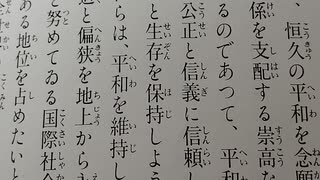 、恒久の平和を念願
係を支配する崇高な
るのであつて、平和
公正と信義に信頼し
と生存を保持しよう
らは、平和を維持し
と偏狭を地上から
と努めてゐる国際社会
ある地位を占めたいと